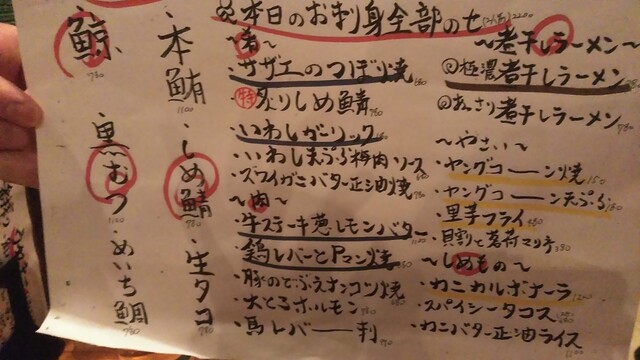 本日のお刺身全部のせ
本鮪 1100
しめ鯖 780
生タコ 780
鯨 780
黒むつ 1100
めいち鯛 780
サザエのつぼ焼
特 炙りしめ鯖 780
いわしガーリック
いわし天ぷら梅肉ソース
ズワイガニバター正油焼
〜肉〜
牛ステーキ葱レモンバター 1100
鶏レバーとPマン焼
豚のとぶえナンコン焼
大とろホルモン
馬レバー刺
〜煮干しラーメン〜
極濃煮干しラーメン
あっさり煮干しラーメン
〜やさい〜
ヤングコーン焼
ヤングコーン天ぷら
里芋フライ
貝割と茗荷マリネ
〜しめもの〜
カニカルボナーラ
スパイシータコス
カニバター正油ライス